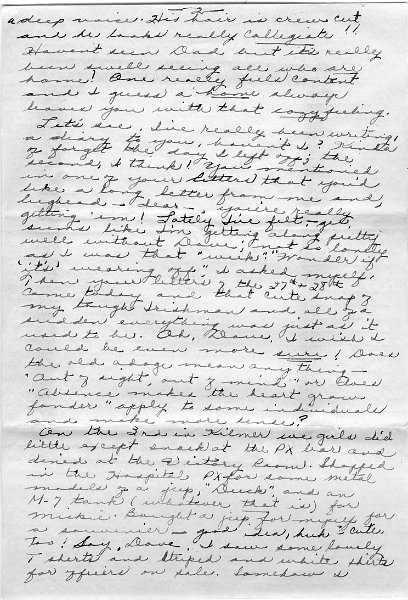 - 2 -
a deep voice. His hair is crew cut
and he looks really collegiate!!
Havent seen Dad but its really
been swell seeing all who are
home! One really feels content
and I guess a home always
leaves you with that cozy feeling.
Let's see, I've really been writing
a diary to you, haven't I? Kinda
forget the day I left off; the
second, I think! You mentioned
in one of your letters that you'd
like a long letter from me and,
bughead - dear - you're really
getting 'em! Lately I've felt - yet
seems like I'm getting along pretty
well without Dave; not so lonely
as I was that "week". "Wonder if
it's wearing off", I asked myself.
Then your letters of the 27th + 28th
came today and that cute snap of
my tough Irishman and all of a
sudden everything was just as it
used to be. Oh, Dave, I wish I
could be even more sure! Does
the old adage mean anything —
"Out of sight, out of mind" or does
"Absence makes the heart grow
fonder" apply to some individuals
and make more sense?
On the 3rd in Kilmer we girls did
little except snack at the PX bar and
dined at the Victory Room. Shopped
in the Hospital PX for some metal
models of a jeep, "Duck" and an
M-7 tank (whatever that is) for
Mickie. Bought a jeep for myself for
a souvenier - good idea, huh? Cute,
too! Say, Dave, I saw some lovely
T shirts and striped and white shirts
for officers on sale. Somehow I